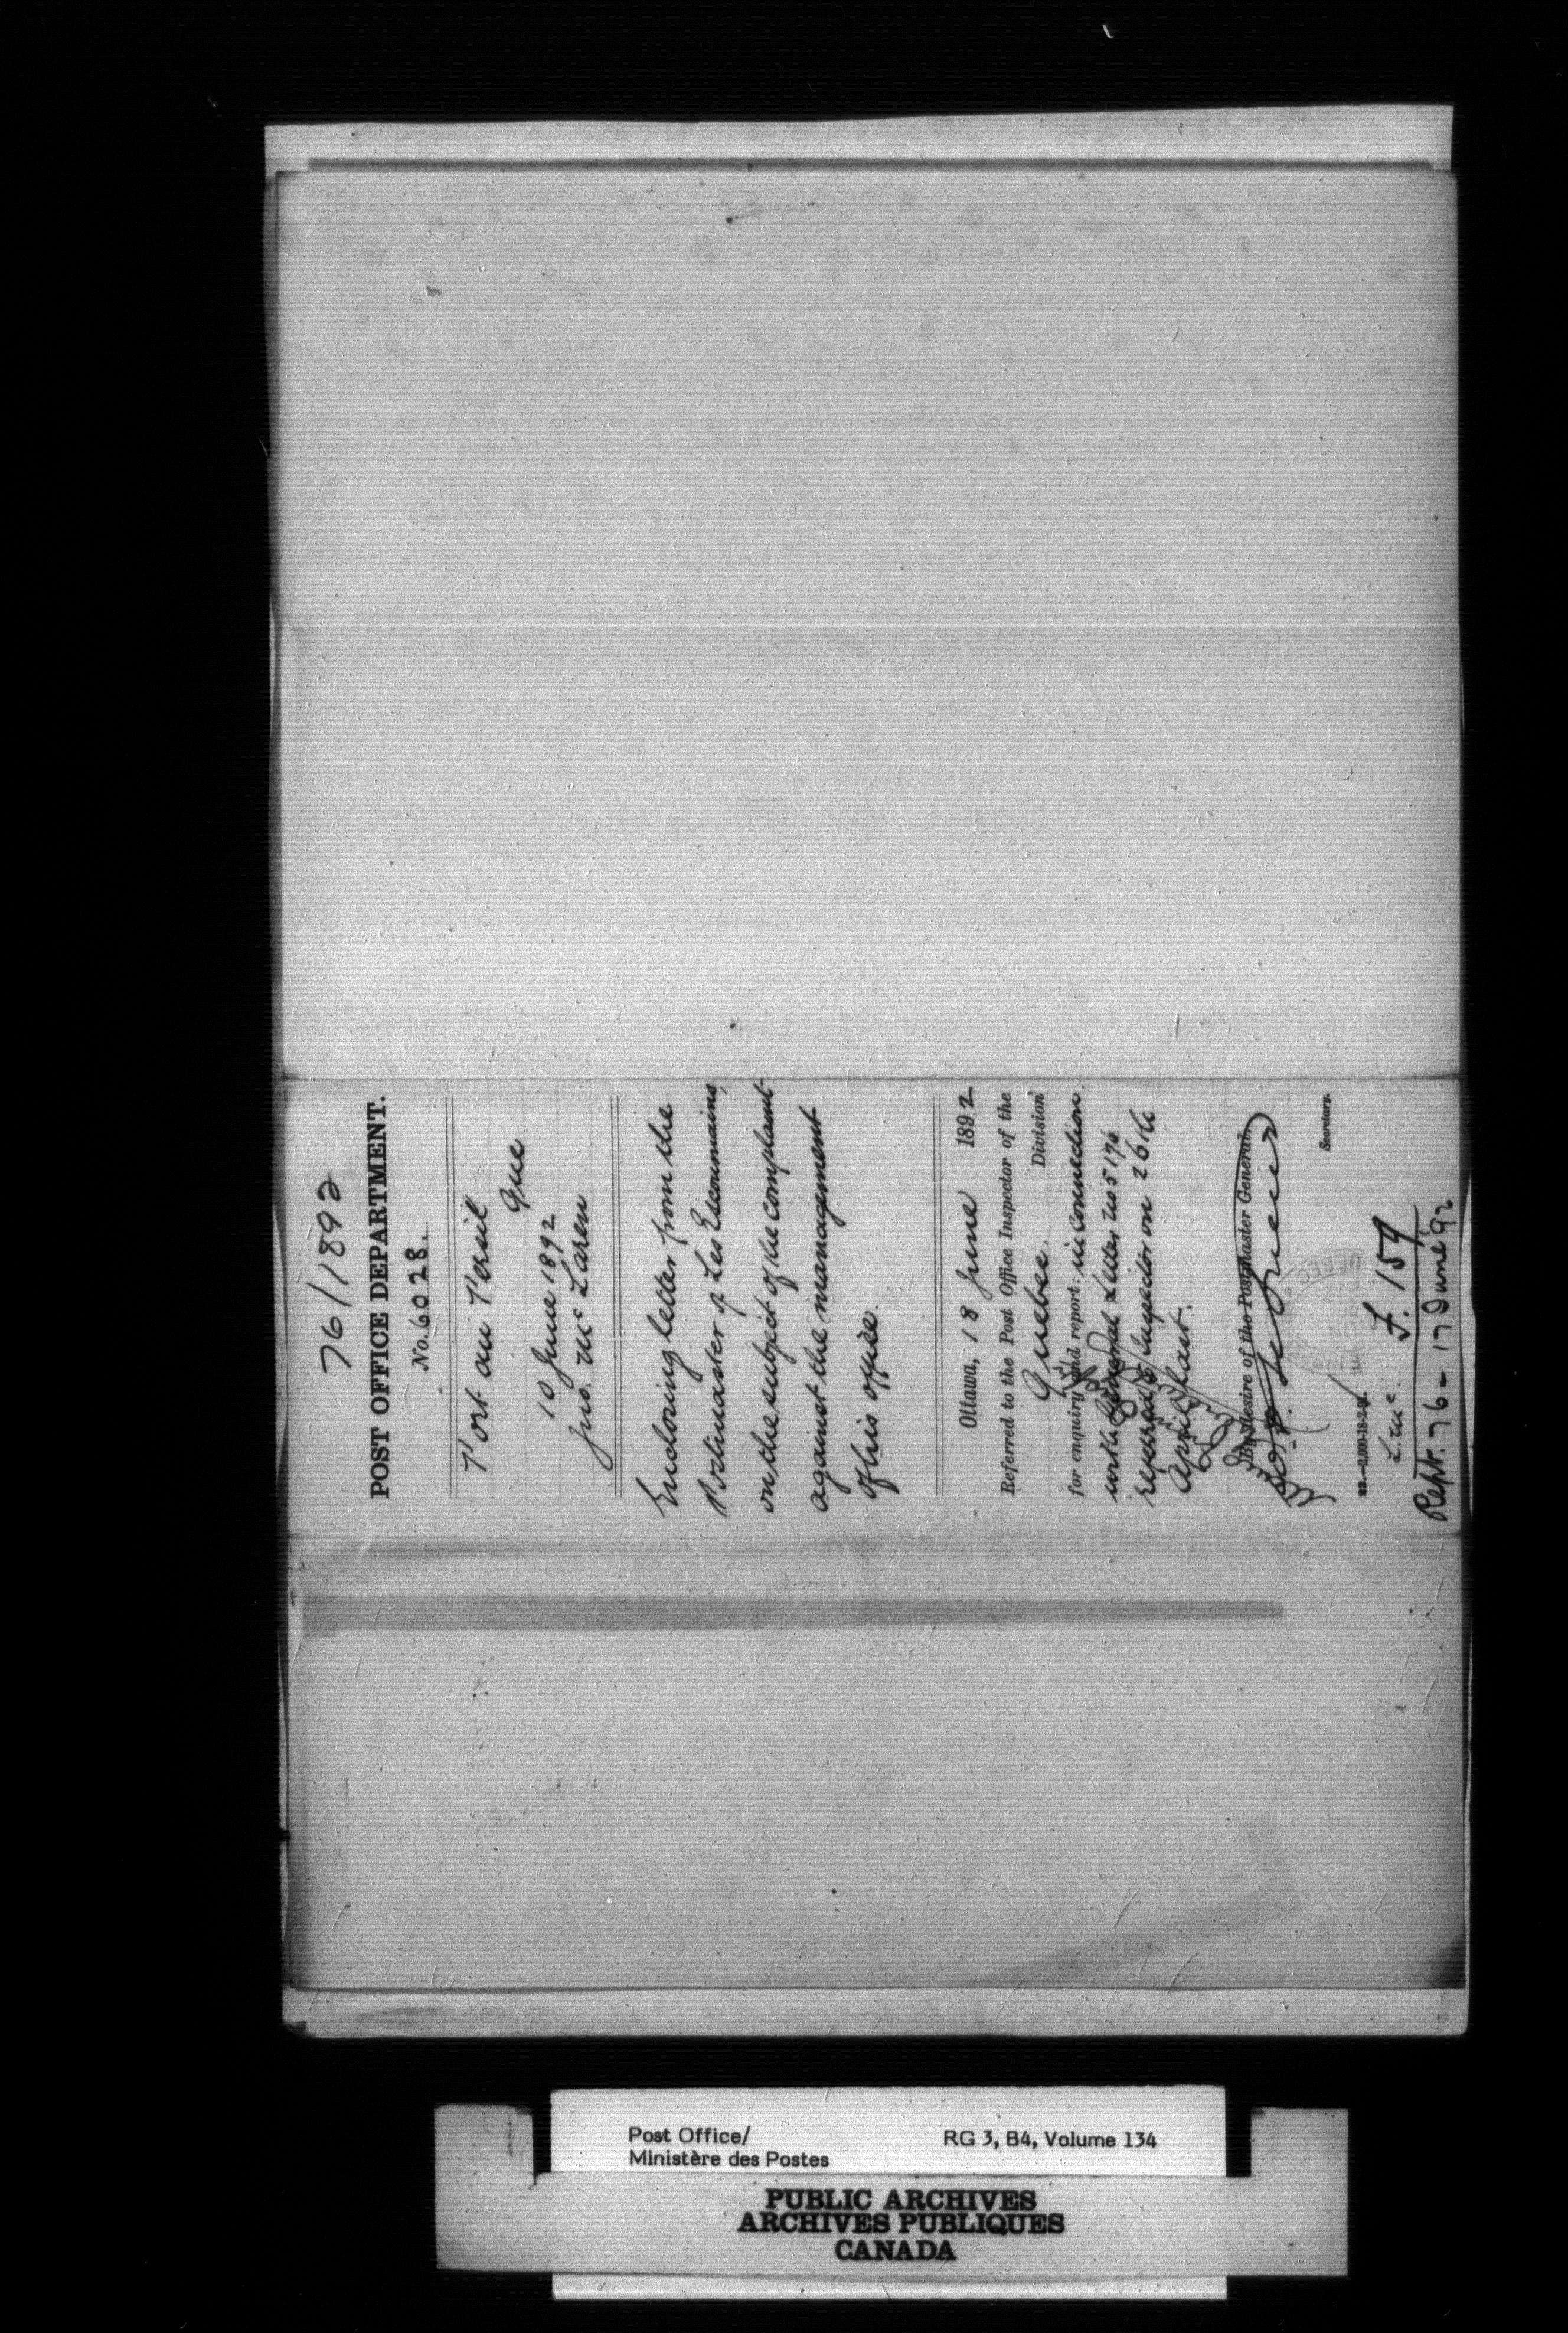 76/1892
POST OFFICE DEPARTMENT.
No. 6028.
Port au Persil
Que
10 June 1892
Jno. McLaren
Enclosing letter from the
Postmaster of Les Escoumains,
on the subject of the complaint
against the management
of his office.
Ottawa, 18 June 1892
Referred to the Post Office Inspector of the
Quebec. Division
for enquiry and report: in connection
with General Letter No 5176
referred to Inspector on 26th
April last.
By desire of the Postmaster General.
Secretary.
23.—2,000-18-2-91.
L. Mc. F. 159
Rept. 76 - 17 June 92
Post Office/
Ministère des Postes
RG 3, B4, Volume 134
PUBLIC ARCHIVES
ARCHIVES PUBLIQUES
CANADA